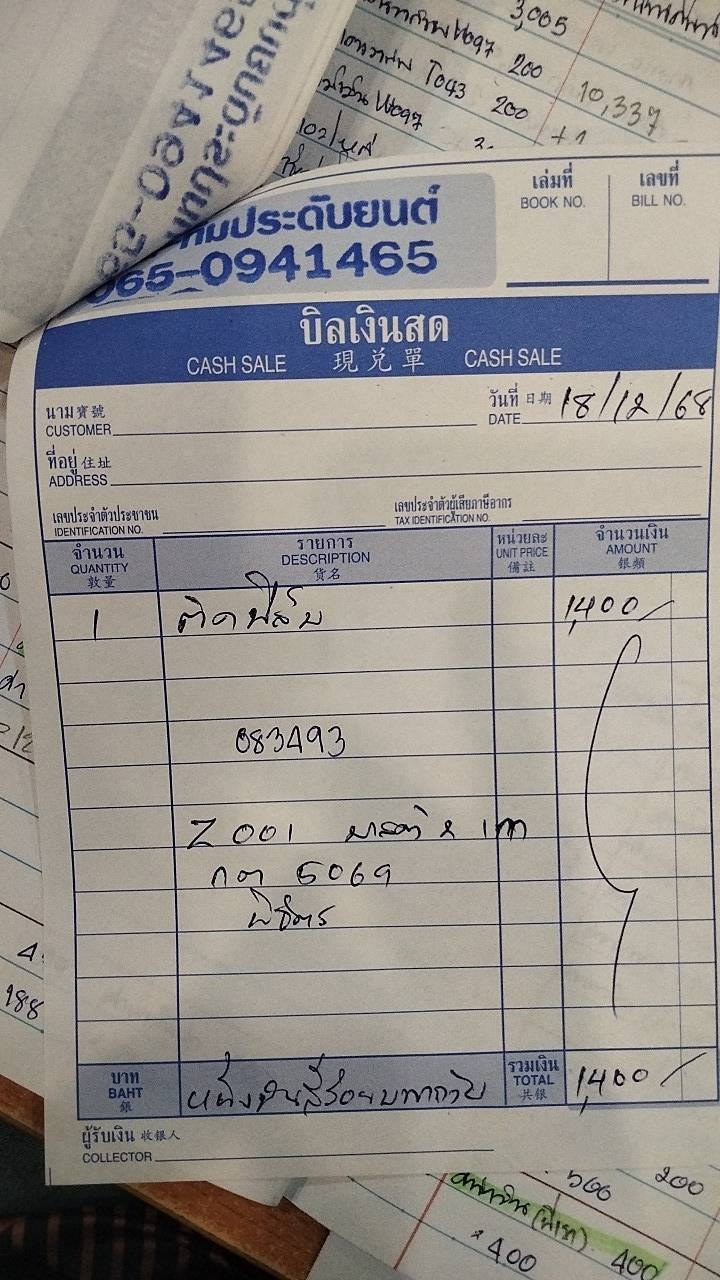 3,005
W097 200
T043 200
10,337
W097
065-0941465
ประดับยนต์
065-0941465
เล่มที่ เลขที่
BOOK NO. BILL NO.
บิลเงินสด
CASH SALE 現兌單 CASH SALE
นาม寶號
CUSTOMER
วันที่ 日期
DATE 18/12/68
ที่อยู่ 住址
ADDRESS
เลขประจำตัวประชาชน
IDENTIFICATION NO.
เลขประจำตัวผู้เสียภาษีอากร
TAX IDENTIFICATION NO.
จำนวน รายการ หน่วยละ จำนวนเงิน
QUANTITY DESCRIPTION UNIT PRICE AMOUNT
數量 貨名 備註 銀額
1 ติดฟิล์ม 1,400/
083493
Z001
กต 5069
พิจิตร
บาท
BAHT
銀
หนึ่งพันสี่ร้อยบาทถ้วน
รวมเงิน
TOTAL
共銀
1,400/
ผู้รับเงิน 收銀人
COLLECTOR
4
188
500 200
400
400